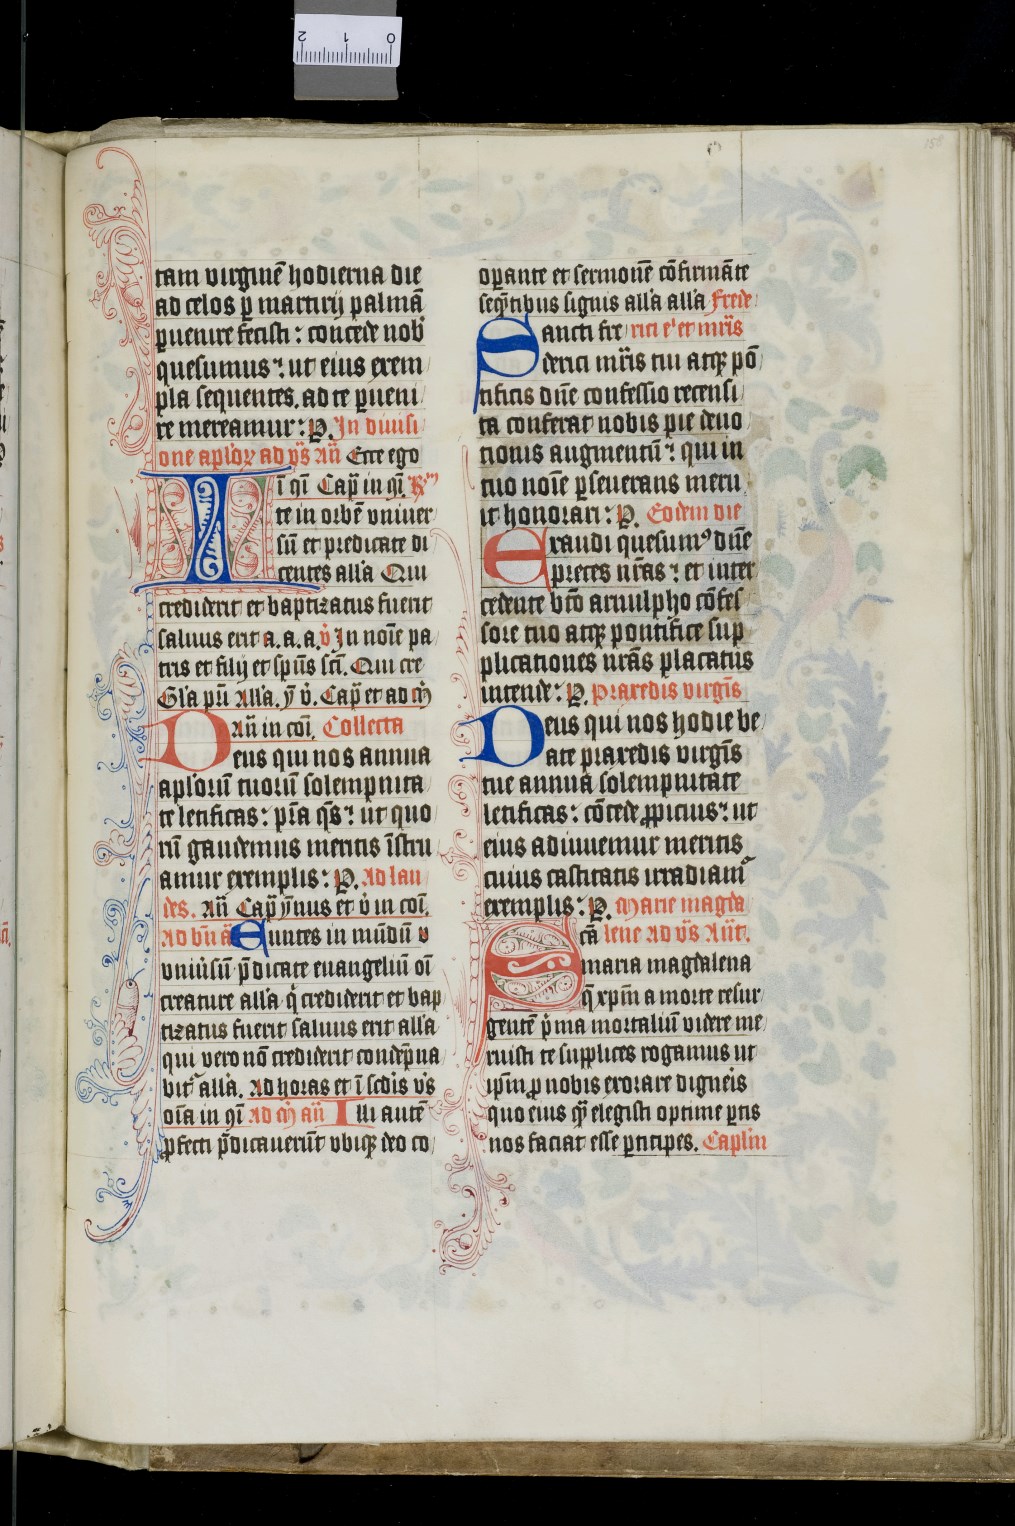 tam virginē hodierna die
ad celos p̲ martirij palmā
p̲uenire fecisti : concede nob̾
quesumus ⁊ ut eius exem
pla sequentes, ad te p̲ueni
re mereamur : P̲. In diuisi
one aplōꝝ ad vs̄ an̄ Ecce ego
ī qī Cap̄ in qī. R̄m̄
te in orbē vniuer
sū et predicate di
centes all'a Qui
crediderit et baptizatus fuerit
saluus erit a. a. a. v̇ In noīe pa
tris et filij et sp̄us scī. Qui cre
Gl'a pr̄i All'a. ym̄ v̇. Cap̄ et ad m̄
an̄ in coī. Collecta
Deus qui nos annua
aplōrū tuorū solempnita
te letificas : pr̄a qs̄ ⁊ ut quo
rū gaudemus meritis īstru
amur exemplis : P̲. Ad lau
des. An̄ Cap̄ ym̄nus et v̇ in coī.
Ad bn̄ a̅ Euntes in mūdū v
vniuersū p̄dicate euangeliū oī
creature all'a q̇ crediderit et bap
tizatus fuerit saluus erit all'a
qui vero nō crediderit condep̄na
bit᷑ all'a. Ad horas et ī sc̄dis vs̄
oīa in qī Ad m̄ an̄ Illi autē
p̲fecti p̄dicauerūt vbiqꝫ deo co
op̲ante et sermonē cōfirmāte
seq̄ntibus signis all'a all'a Frede
Sancti fre rici ep̄i et mr̄is
derici mr̄is tui atqꝫ pō
tificis dn̄e confessio recensi
ta conferat nobis pie deuo
tionis augmentū ⁊ qui in
tuo noīe p̲seuerans meru
it honorari : P̲. Eodem die
Exaudi quesumꝰ dn̄e
preces nr̄as ⁊ et inter
cedente bt̄o arnulpho cōfes
sore tuo atqꝫ pontifice sup
plicationes nr̄as placatus
intende : P̲. Praxedis virgīs
Deus qui nos hodie be
ate praxedis virgīs
tue annua solempnitate
letificas : cōcede ꝓpicius ⁊ ut
eius adiuuemur meritis
cuius castitatis irradiam᷑
exemplis : P̲. Marie magda
Scā lene ad vs̄ Ant̄.
maria magdalena
q̄ xpm̄ a morte resur
gentē p̍ma mortaliū videre me
ruisti te supplices rogamus ut
ip̄m ꝓ nobis exorare digneis
quo eius q̄ elegisti optime p̲tis
nos faciat esse p̲ticipes. Caplm̄
158
2 1 0